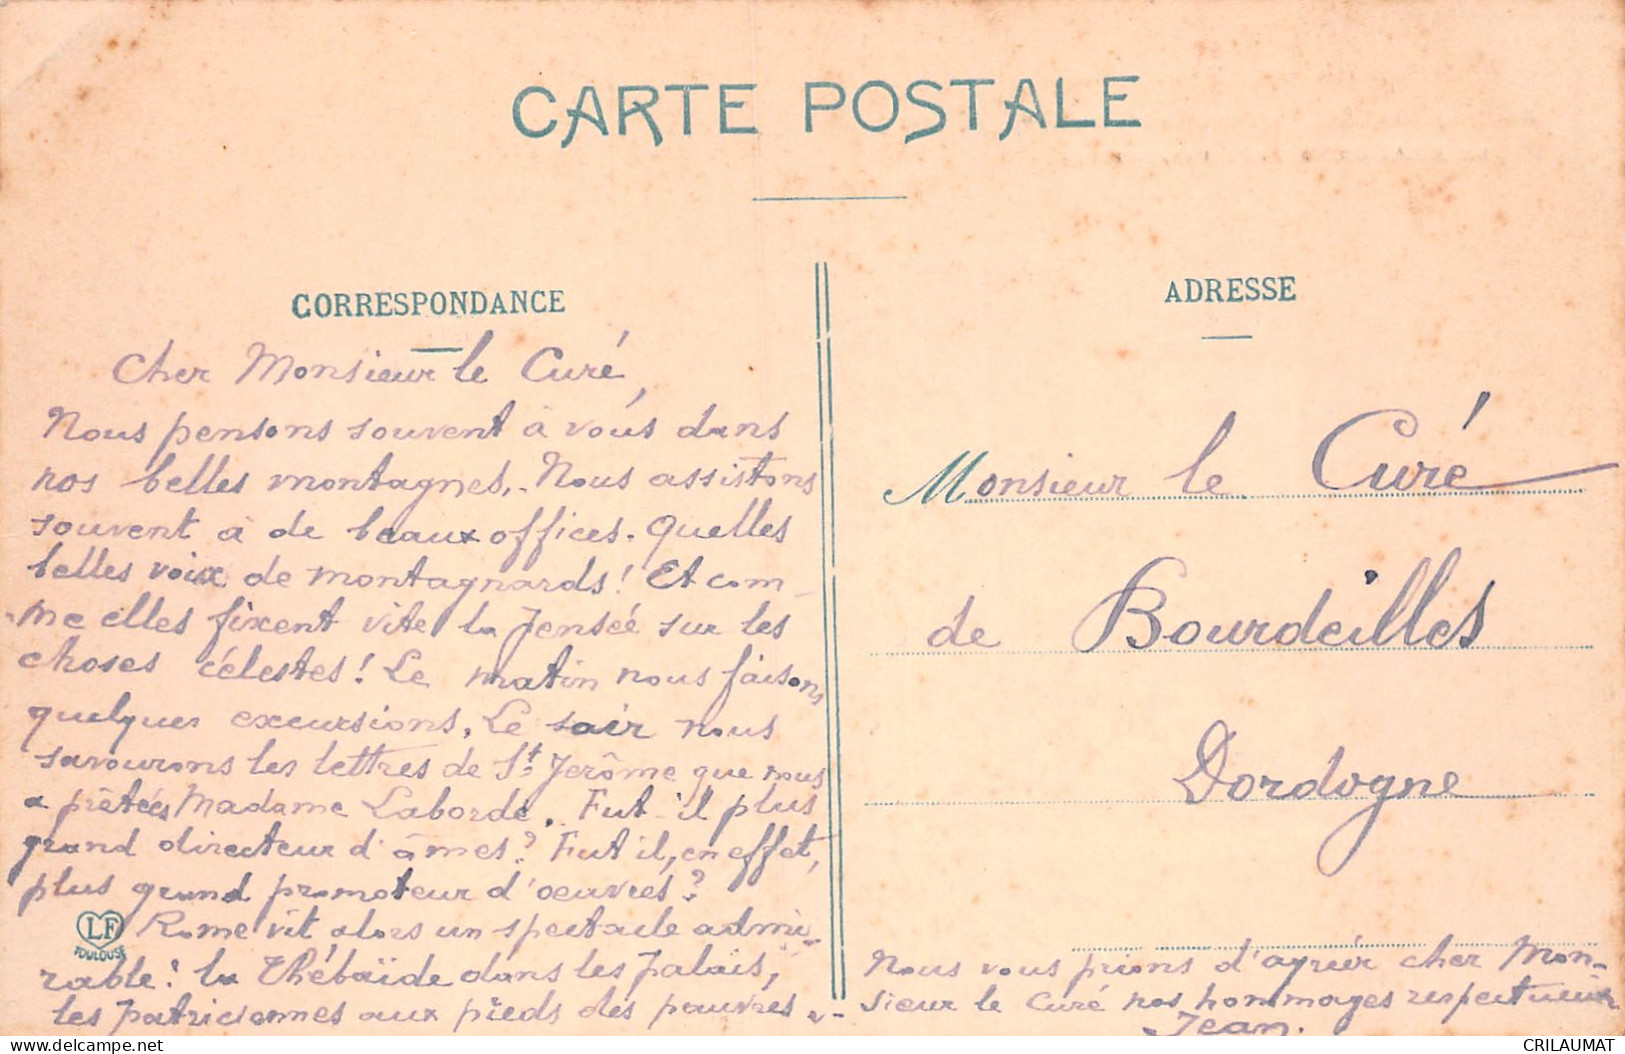 CARTE POSTALE
CORRESPONDANCE
Cher Monsieur le Curé,
Nous pensons souvent à vous dans
nos belles montagnes. Nous assistons
souvent à de beaux offices. Quelles
belles voix de montagnards! Et com-
me elles fixent vite la pensée sur les
choses célestes! Le matin nous faisons
quelques excursions. Le soir nous
savourons les lettres de St Jérôme que nous
a prêtées Madame Laborde. Fut-il plus
grand directeur d'âmes? Fut il, en effet,
plus grand promoteur d'oeuvres?
Rome vit alors un spectacle admi-
rable: la Thébaïde dans les palais,
les patriciennes aux pieds des pauvres.
LF
TOULOUSE
ADRESSE
Monsieur le Curé
de Bourdeilles
Dordogne
Nous vous prions d'agréer cher Mon-
sieur le Curé nos hommages respectueux
Jean.
delcampe.net
CRILAUMAT